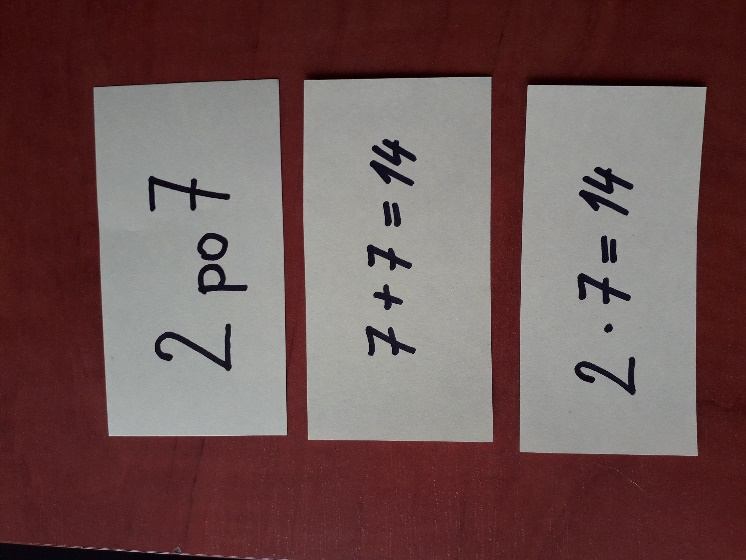 2 po 7
7 + 7 = 14
2 · 7 = 14